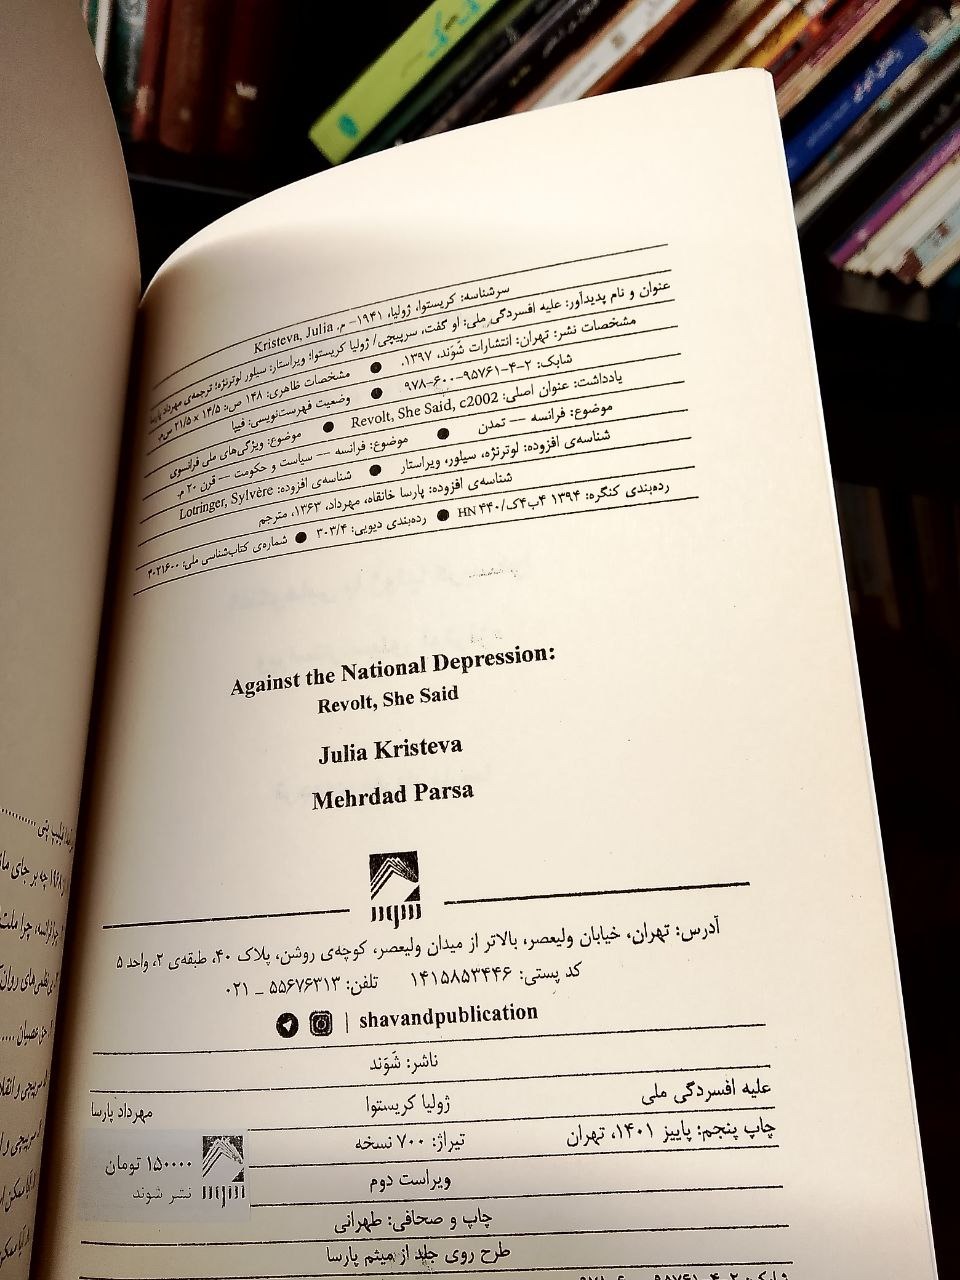 سرشناسه: کریستوا، ژولیا، ۱۹۴۱- م. Kristeva, Julia
عنوان و نام پدیدآور: علیه افسردگی ملی: او گفت، سرپیچی/ ژولیا کریستوا؛ ویراستار: سیلور لوترنژه؛ ترجمه‌ی مهرداد پارسا
مشخصات نشر: تهران: انتشارات شَوَند، ۱۳۹۷. ● مشخصات ظاهری: ۱۴۸ ص؛ ۱۴/۵ × ۲۱/۵ س‌م.
شابک: ۲-۴-۹۵۷۶۱-۶۰۰-۹۷۸ ● وضعیت فهرست‌نویسی: فیپا
یادداشت: عنوان اصلی: Revolt, She Said, c2002 ● موضوع: ویژگی‌های ملی فرانسوی
موضوع: فرانسه -- تمدن ● موضوع: فرانسه -- سیاست و حکومت -- قرن ۲۰ م.
شناسه‌ی افزوده: لوترنژه، سیلور، ویراستار ● شناسه‌ی افزوده: Lotringer, Sylvère
شناسه‌ی افزوده: پارسا خانقاه، مهرداد، ۱۳۶۳، مترجم
رده‌بندی کنگره: ۱۳۹۴ ۴ب۴ک/HN ۴۴۰ ● رده‌بندی دیویی: ۳۰۳/۴ ● شماره‌ی کتاب‌شناسی ملی: ۴۰۲۱۶۰۰
Against the National Depression:
Revolt, She Said
Julia Kristeva
Mehrdad Parsa
شوند
آدرس: تهران، خیابان ولیعصر، بالاتر از میدان ولیعصر، کوچه‌ی روشن، پلاک ۴۰، طبقه‌ی ۲، واحد ۵
کد پستی: ۱۴۱۵۸۵۳۴۴۶ تلفن: ۵۵۶۷۶۳۱۳ _ ۰۲۱
| shavandpublication
ناشر: شَوَند
علیه افسردگی ملی ژولیا کریستوا مهرداد پارسا
چاپ پنجم: پاییز ۱۴۰۱، تهران تیراژ: ۷۰۰ نسخه
۱۵۰۰۰۰ تومان
نشر شوند
شوند
ویراست دوم
چاپ و صحافی: طهرانی
طرح روی جلد از میثم پارسا